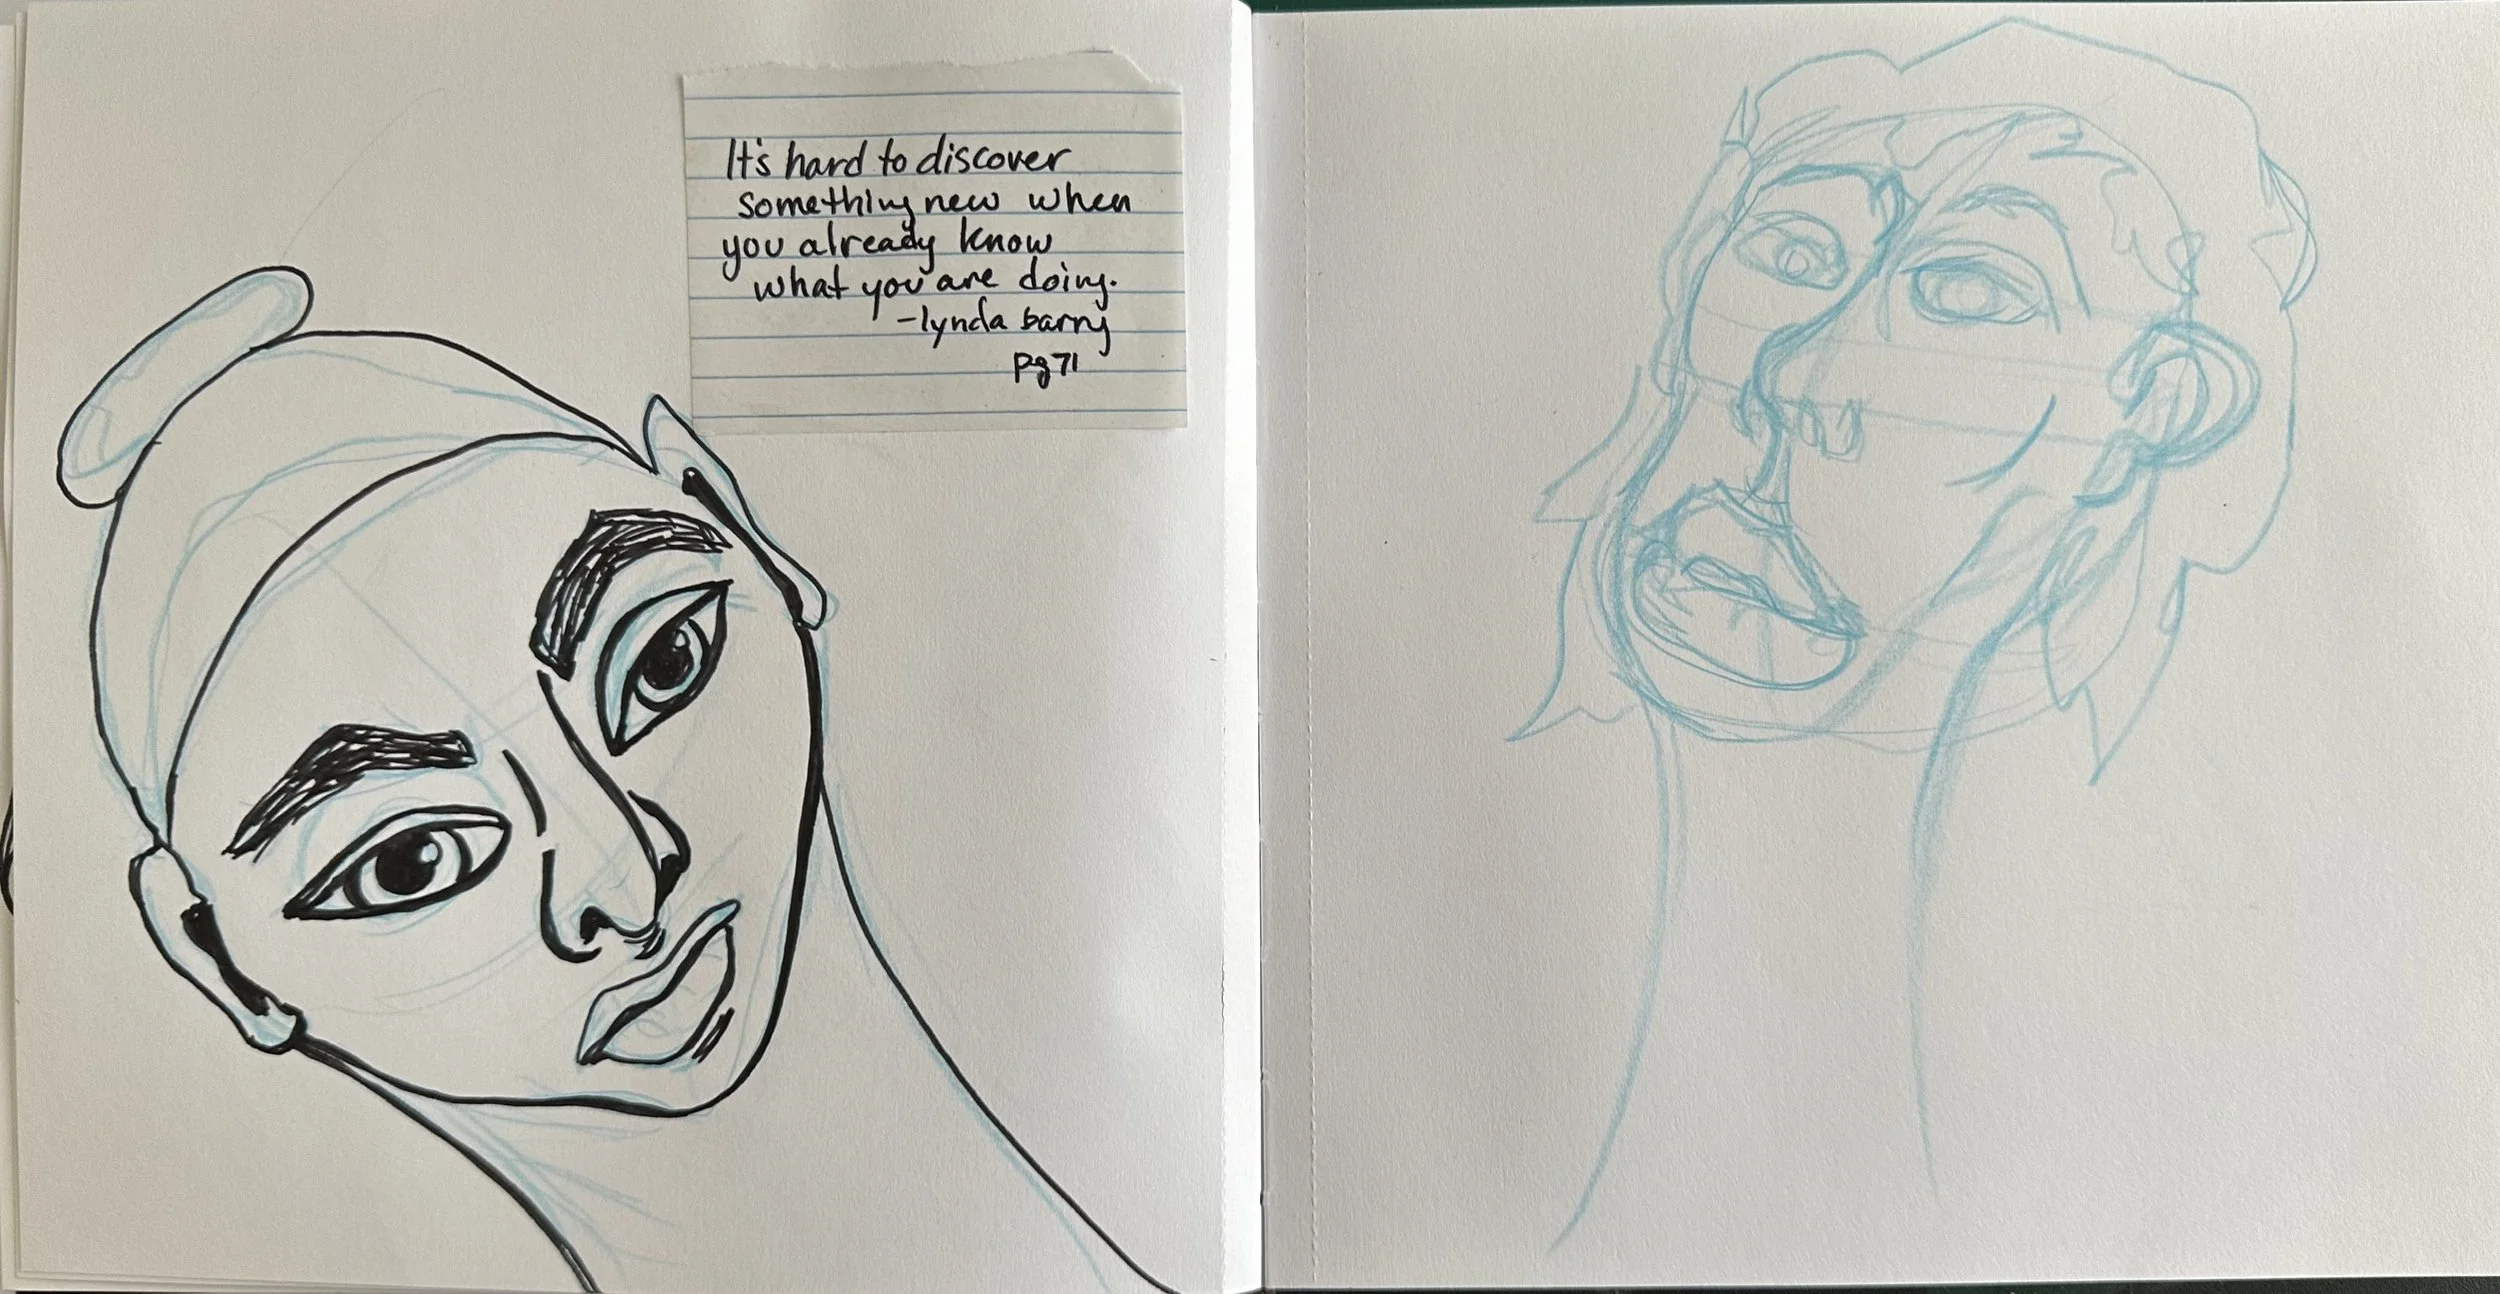 It's hard to discover
something new when
you already know
what you are doing.
-lynda barry
pg 71